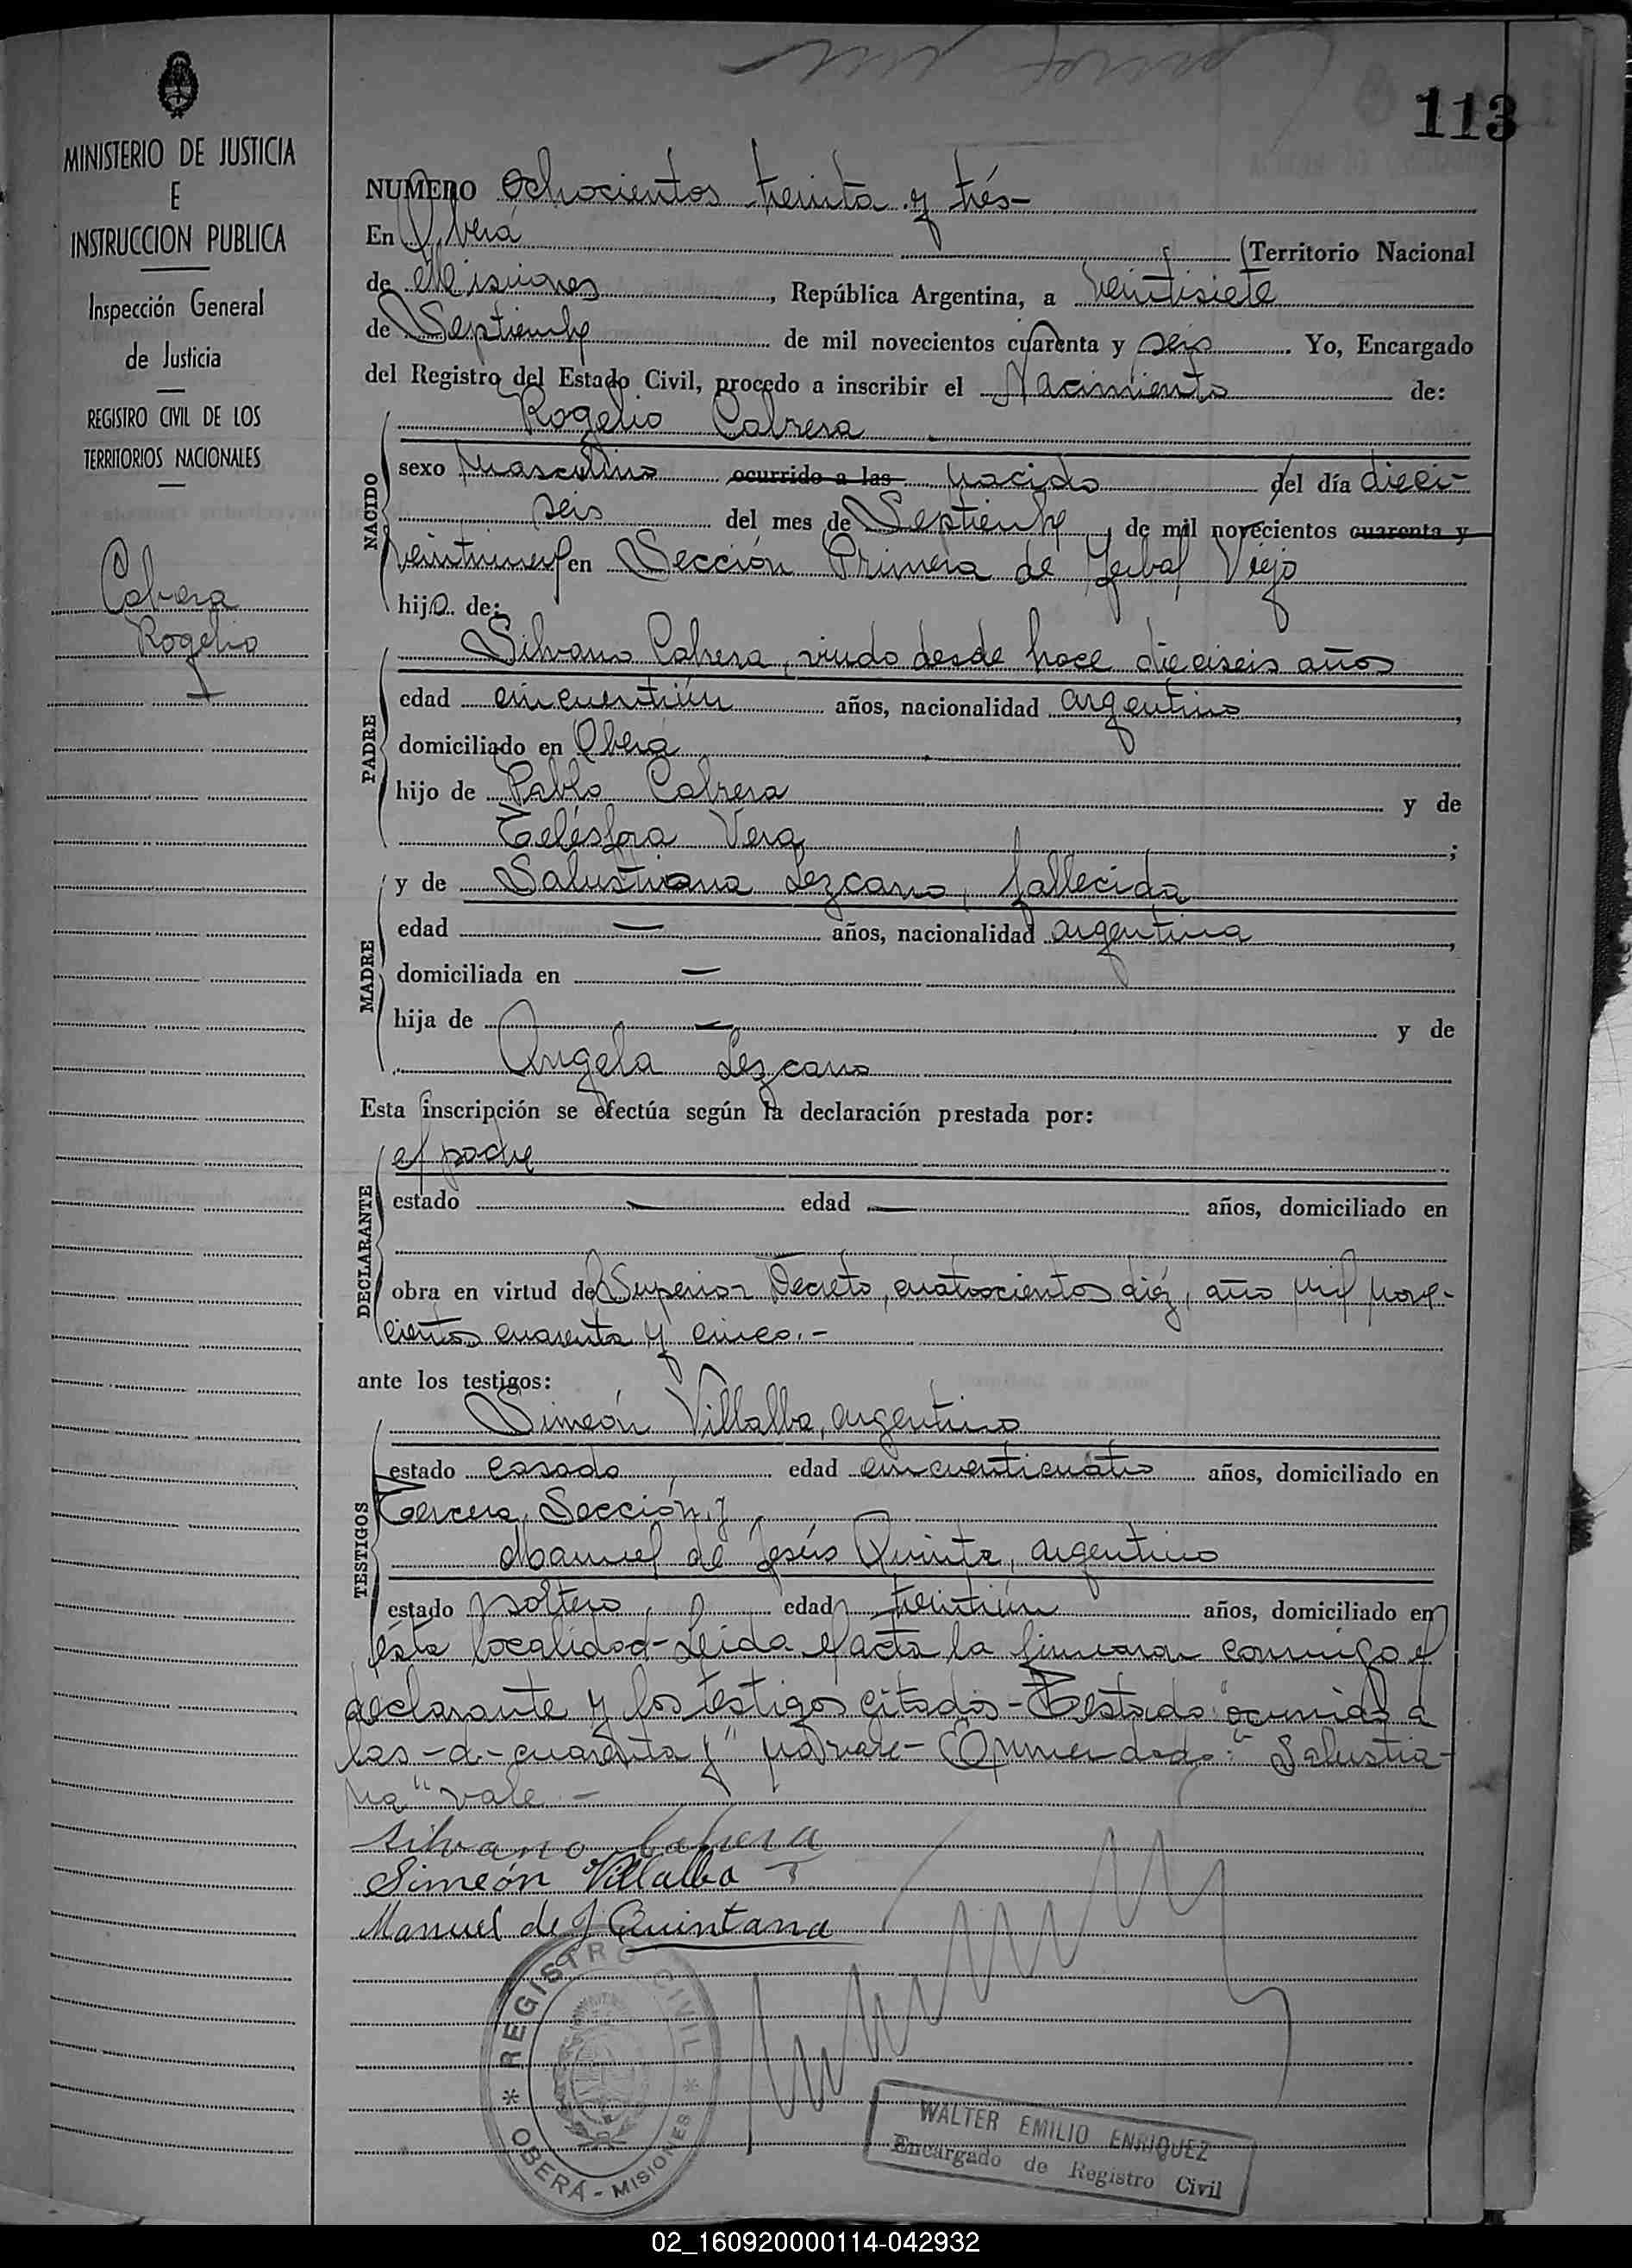 113
MINISTERIO DE JUSTICIA
E
INSTRUCCION PUBLICA
Inspección General
de Justicia
REGISTRO CIVIL DE LOS
TERRITORIOS NACIONALES
Cabrera
Rogelio
NUMERO Ochocientos treinta y trés-
En Oberá (Territorio Nacional
de Misiones, República Argentina, a veintisiete
de Septiembre de mil novecientos cuarenta y seis. Yo, Encargado
del Registro del Estado Civil, procedo a inscribir el Nacimiento de:
NACIDO
Rogelio Cabrera
sexo masculino ocurrido a las nacido del día dieci-
seis del mes de Septiembre, de mil novecientos cuarenta y
veintinueve en Sección Primera de Yerbal Viejo
hijo de:
PADRE
Silvano Cabrera, viudo desde hace dieciseis años
edad cincuentiún años, nacionalidad argentino,
domiciliado en Oberá
hijo de Pablo Cabrera y de
Telésfora Vera;
MADRE
y de Salustiana Lezcano, fallecida
edad — años, nacionalidad argentina,
domiciliada en —
hija de — y de
Angela Lezcano
Esta inscripción se efectúa según la declaración prestada por:
DECLARANTE
el padre
estado — edad — años, domiciliado en
obra en virtud del Superior Decreto, cuatrocientos diéz, año mil nove-
cientos cuarenta y cinco.-
ante los testigos:
TESTIGOS
Simeón Villalba, argentino
estado casado, edad cincuenticuatro años, domiciliado en
Tercera Sección y
Manuel de Jesús Quinta, argentino
estado soltero, edad treintiún años, domiciliado en
ésta localidad-Leida el acta la firmaron conmigo el
declarante y los testigos citados-Testado "ocurrido a
las-d-cuarenta y" no vale-Enmendado: "Salustia-
na" vale.-
Silvano Cabrera
Simeón Villalba
Manuel de J Quintana
* REGISTRO CIVIL *
OBERÁ - MISIONES
WALTER EMILIO ENRIQUEZ
Encargado de Registro Civil
02_160920000114-042932